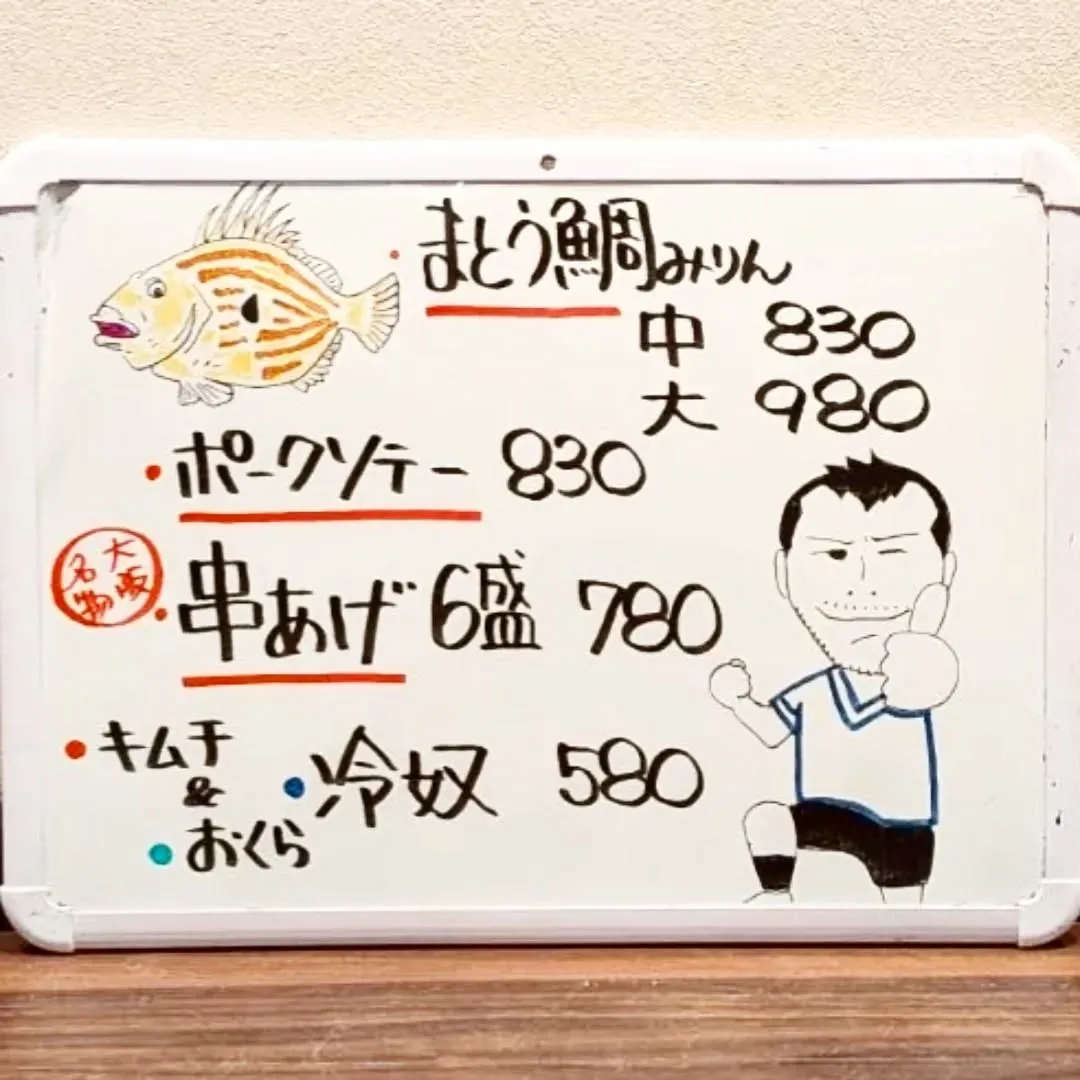 まとう鯛みりん
中 830
大 980
ポークソテー 830
大阪
名物
串あげ 6盛 780
キムチ
&
おくら
冷奴 580